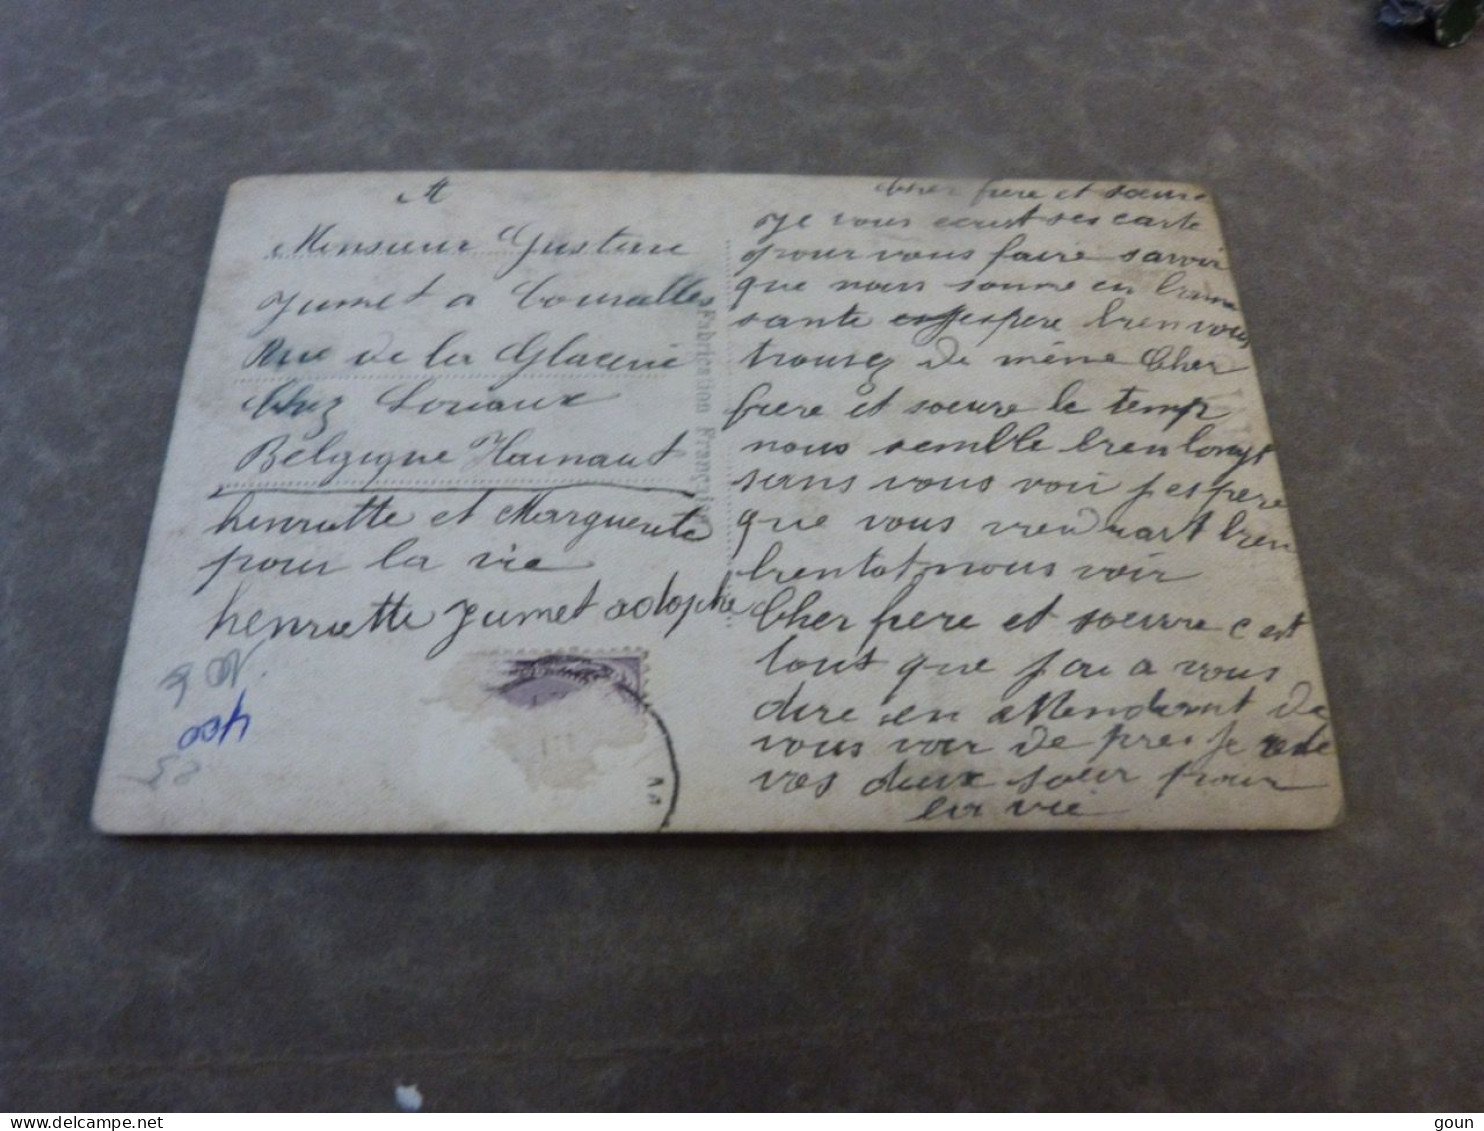 A
Monsieur Gustave
Jumet a Courcelles
Rue de la Glacerie
Chez Loriaux
Belgique Hainaut
henriette et Marguerite
pour la vie
henriette Jumet adolphe
400
25
Fabrication Française
Cher frere et soeure
Je vous ecrist ses carte
pour vous faire savoir
que nous somme en bonne
sante espere bien vous
trouvez de même Cher
frere et soeure le temp
nous semble bien longt
sans vous voir j espere
que vous viendrart bien
bientot nous voir
Cher frere et soeure c est
tout que j ai a vous
dire en attendant de
vous voir de pres je
vos deux soeur pour
la vie
delcampe.net
goun